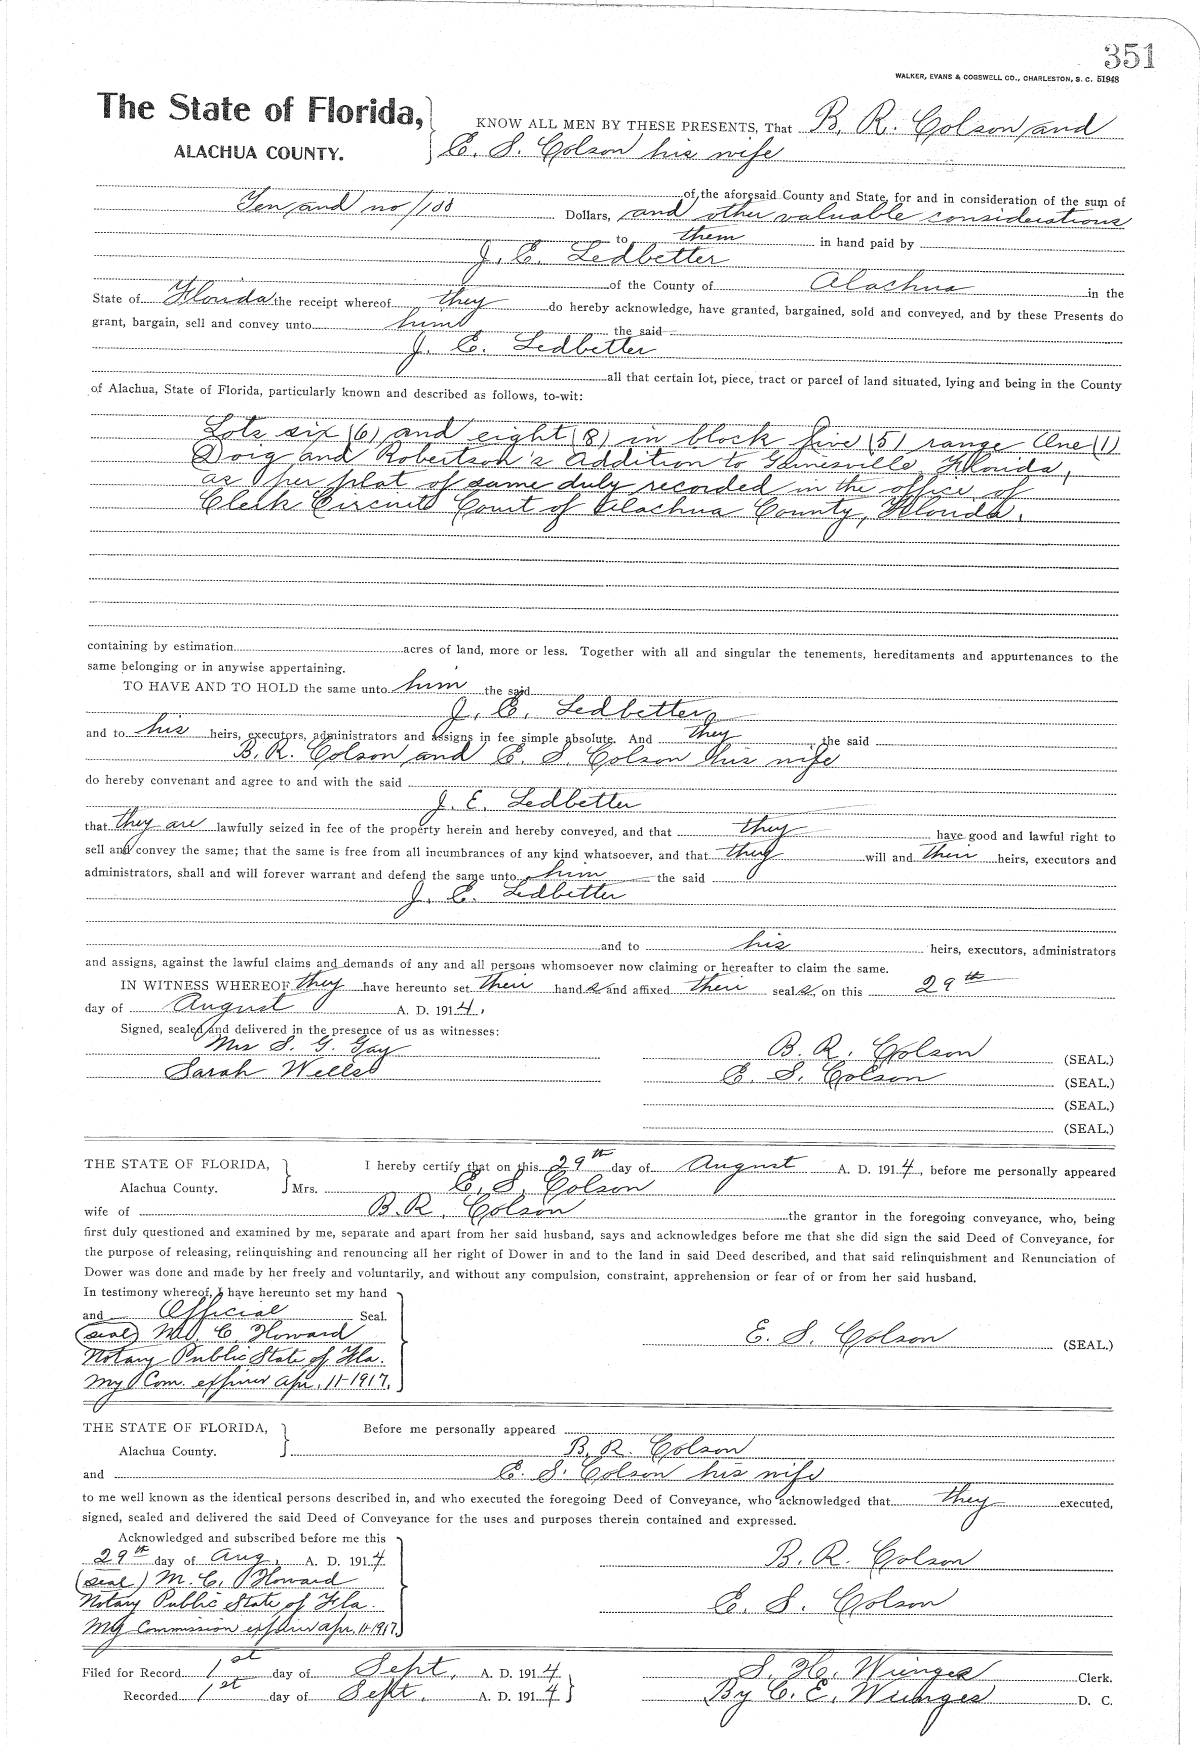 351
WALKER, EVANS & COGSWELL CO., CHARLESTON, S. C. 51948
The State of Florida,
ALACHUA COUNTY.
KNOW ALL MEN BY THESE PRESENTS, That B. R. Colson and
E. S. Colson his wife
of the aforesaid County and State, for and in consideration of the sum of
Ten and no/100 Dollars, and other valuable considerations
to them in hand paid by
J. E. Ledbetter
of the County of Alachua in the
State of Florida the receipt whereof they do hereby acknowledge, have granted, bargained, sold and conveyed, and by these Presents do
grant, bargain, sell and convey unto him the said
J. E. Ledbetter
all that certain lot, piece, tract or parcel of land situated, lying and being in the County
of Alachua, State of Florida, particularly known and described as follows, to-wit:
Lots six (6) and eight (8) in block five (5) range One (1)
Doig and Robertson's Addition to Gainesville, Florida,
as per plat of same duly recorded in the office of
Clerk Circuit Court of Alachua County, Florida.
containing by estimation acres of land, more or less. Together with all and singular the tenements, hereditaments and appurtenances to the
same belonging or in anywise appertaining.
TO HAVE AND TO HOLD the same unto him the said
J. E. Ledbetter
and to his heirs, executors, administrators and assigns in fee simple absolute. And they the said
B. R. Colson and E. S. Colson his wife
do hereby convenant and agree to and with the said
J. E. Ledbetter
that they are lawfully seized in fee of the property herein and hereby conveyed, and that they have good and lawful right to
sell and convey the same; that the same is free from all incumbrances of any kind whatsoever, and that they will and their heirs, executors and
administrators, shall and will forever warrant and defend the same unto him the said
J. E. Ledbetter
and to his heirs, executors, administrators
and assigns, against the lawful claims and demands of any and all persons whomsoever now claiming or hereafter to claim the same.
IN WITNESS WHEREOF they have hereunto set their hand s and affixed their seal s, on this 29th
day of August A. D. 1914.
Signed, sealed and delivered in the presence of us as witnesses:
Mrs S. G. Gay
Sarah Wells
B. R. Colson (SEAL.)
E. S. Colson (SEAL.)
(SEAL.)
(SEAL.)
THE STATE OF FLORIDA,
Alachua County.
I hereby certify that on this 29th day of August A. D. 1914, before me personally appeared
Mrs. E. S. Colson
wife of B. R. Colson the grantor in the foregoing conveyance, who, being
first duly questioned and examined by me, separate and apart from her said husband, says and acknowledges before me that she did sign the said Deed of Conveyance, for
the purpose of releasing, relinquishing and renouncing all her right of Dower in and to the land in said Deed described, and that said relinquishment and Renunciation of
Dower was done and made by her freely and voluntarily, and without any compulsion, constraint, apprehension or fear of or from her said husband.
In testimony whereof, I have hereunto set my hand
and Official Seal.
(seal) M. C. Howard
Notary Public State of Fla.
My Com. expires Apr. 11-1917.
E. S. Colson (SEAL.)
THE STATE OF FLORIDA,
Alachua County.
Before me personally appeared
B. R. Colson
and E. S. Colson his wife
to me well known as the identical persons described in, and who executed the foregoing Deed of Conveyance, who acknowledged that they executed,
signed, sealed and delivered the said Deed of Conveyance for the uses and purposes therein contained and expressed.
Acknowledged and subscribed before me this
29th day of Aug, A. D. 1914
(seal) M. C. Howard
Notary Public State of Fla.
My Commission expires Apr. 11-1917
B. R. Colson
E. S. Colson
Filed for Record 1st day of Sept, A. D. 1914
Recorded 1st day of Sept. A. D. 1914
S. H. Wienges Clerk.
By C. E. Wienges D. C.